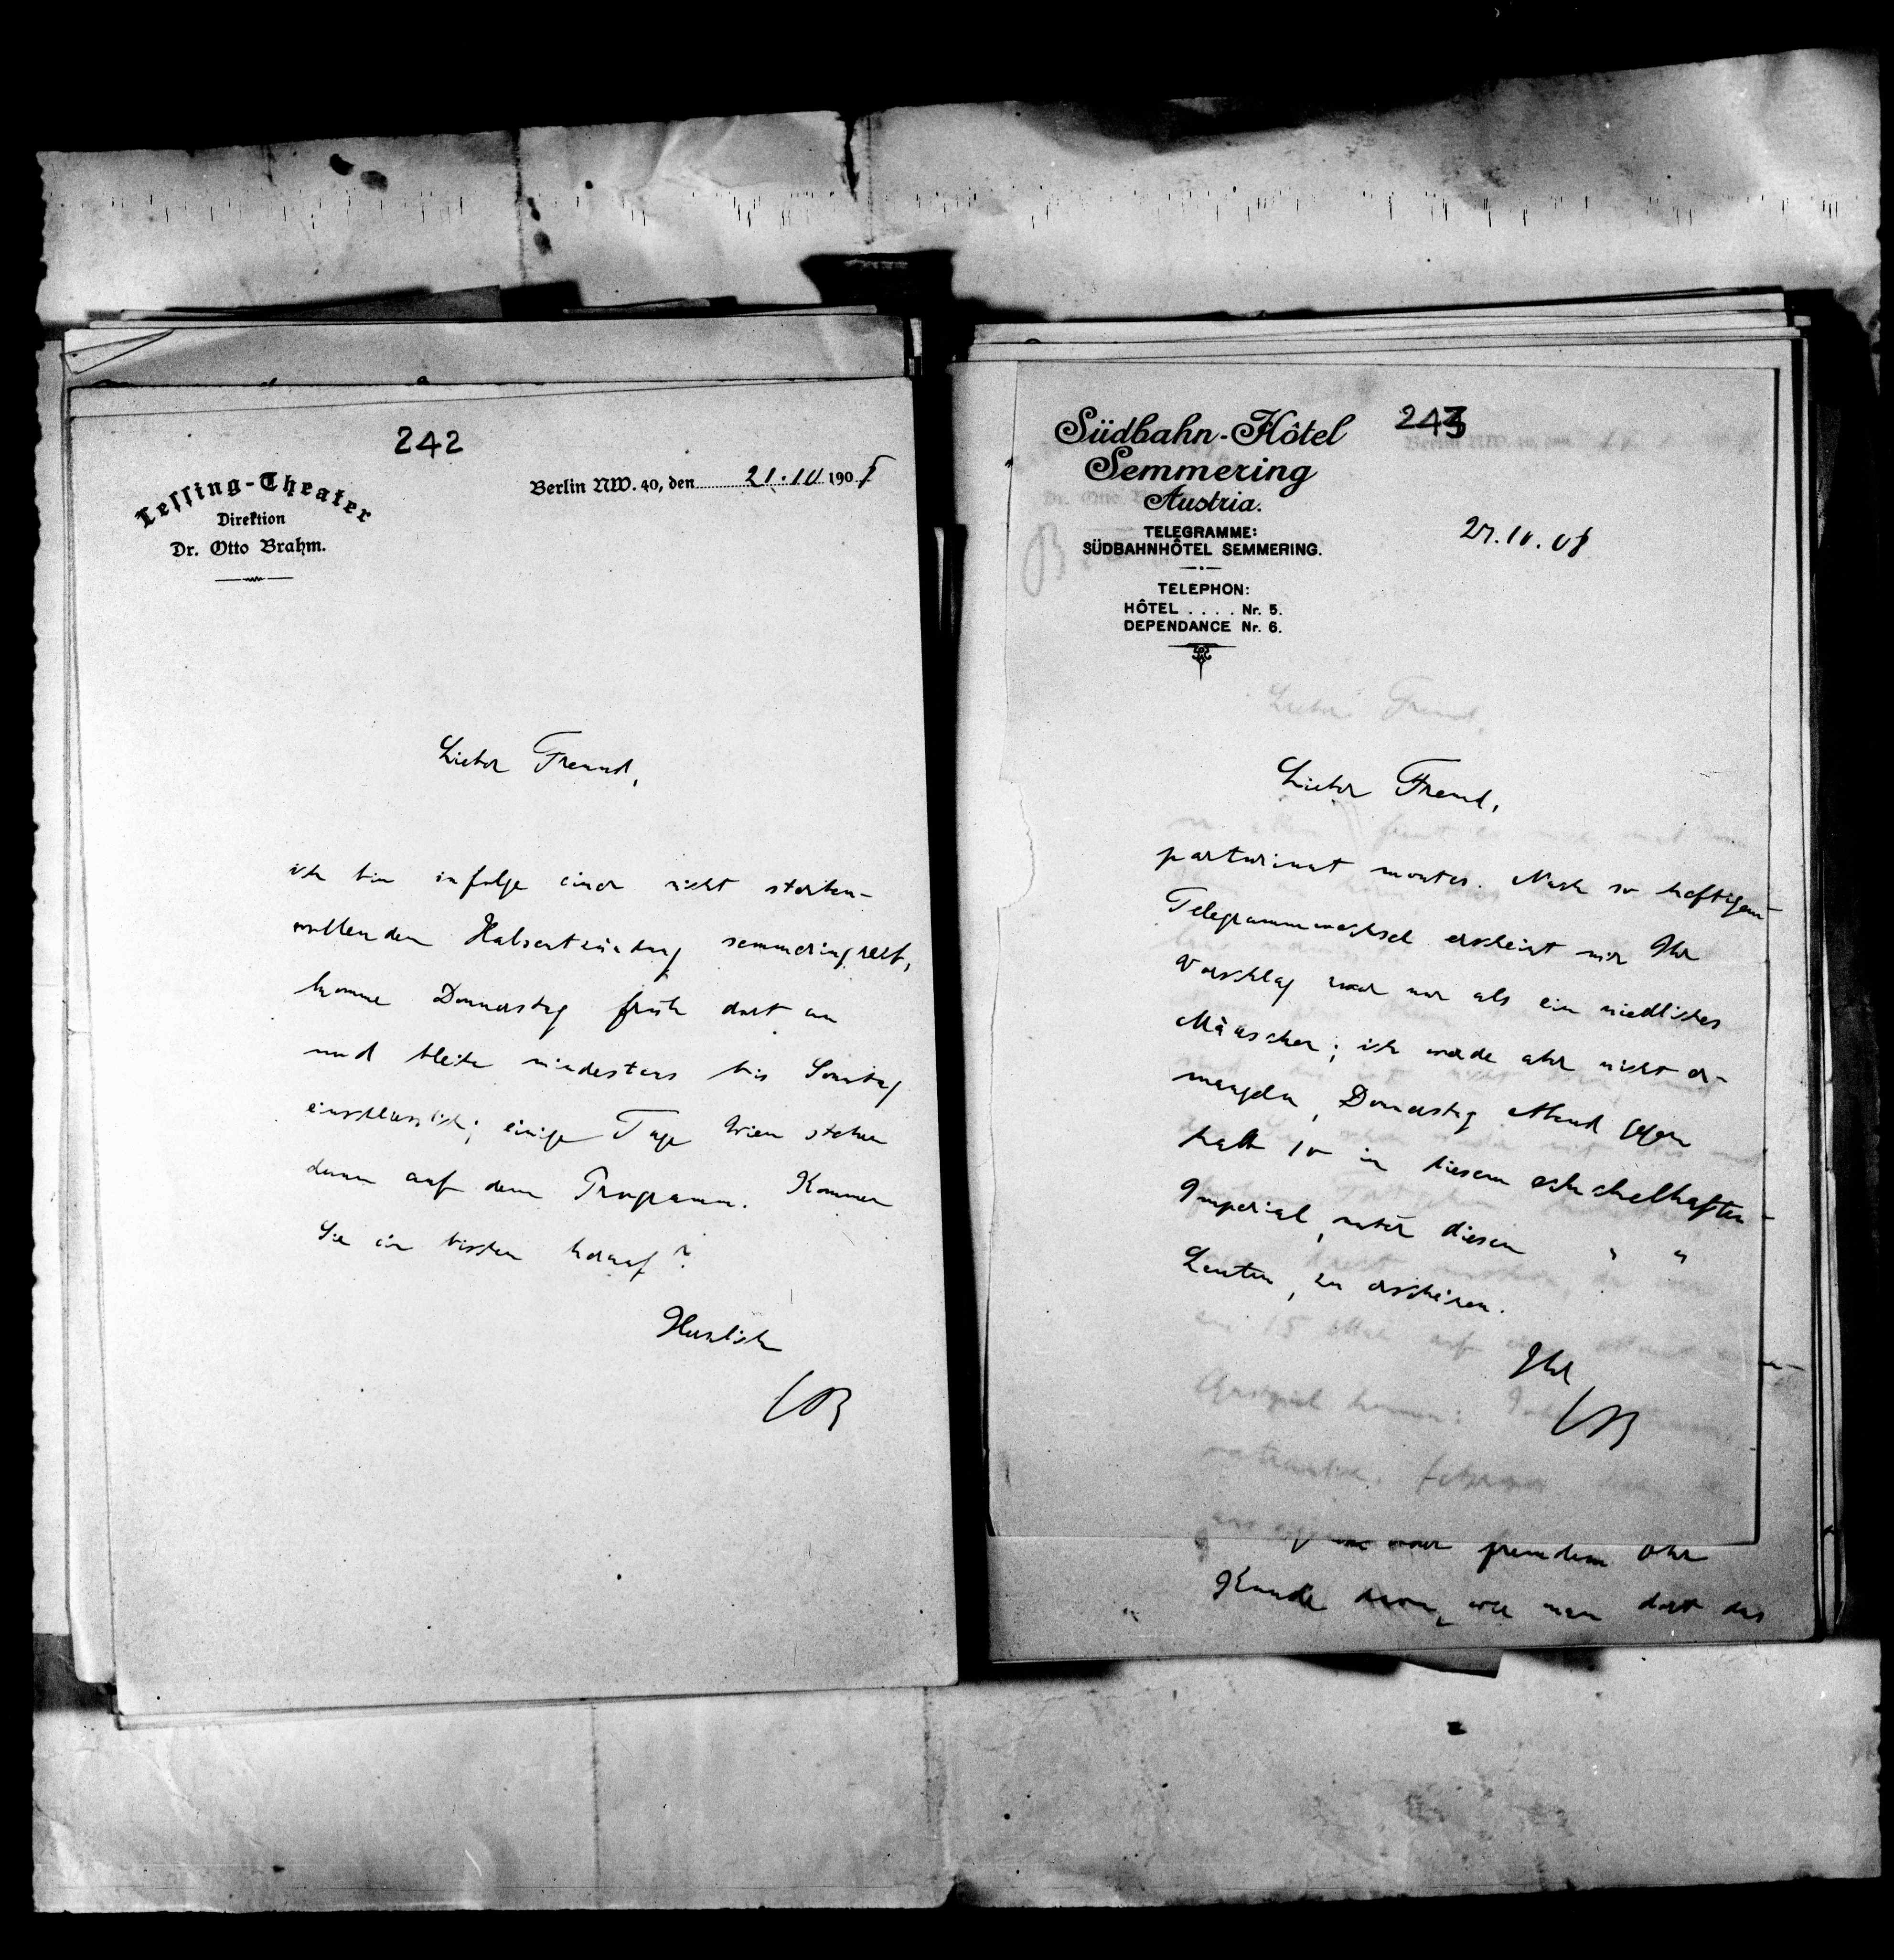 242
Lessing-Theater
Direktion
Dr. Otto Brahm.
Berlin NW. 40, den 21.10 1908
Lieber Freund,
ich bin infolge einer nicht sterben-
wollenden Halsentzündung semmeringreif,
komme Donnerstag früh dort an
und bleibe mindestens bis Sonntag
einschliesslich; einige Tage Wien stehen
dann auf dem Programm. Kommen
Sie ein bisschen herauf?
Herzlich
OB
243
Südbahn-Hôtel
Semmering
Austria.
TELEGRAMME:
SÜDBAHNHÔTEL SEMMERING.
TELEPHON:
HÔTEL . . . . Nr. 5.
DEPENDANCE Nr. 6.
27.10.08
Lieber Freund,
parturiunt montes. Nach so heftigem
Telegrammwechsel erscheint mir Ihr
Vorschlag zwar nur als ein niedliches
Mäuschen; ich werde aber nicht er-
mangeln, Donnerstag Abend gegen
halb 10 in diesem ekelhaften
Imperial, unter diesen " "
Leuten, zu erscheinen.
Ihr
OB
fremdem Ohr
Kunde davon, wie man dort das